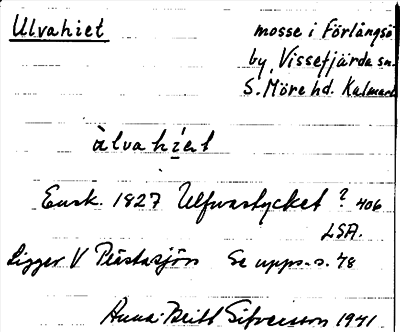 Ulvahiet mosse i Förlångsö
by, Vissefjärda sn.
S. Möre hd. Kalmar
àlva hi̱et
Ensk. 1827 Ulfvastycket ? 406
LSA.
Ligger V Plåstasjön Se upps. s. 78
Anna-Britt Sifversson 1941